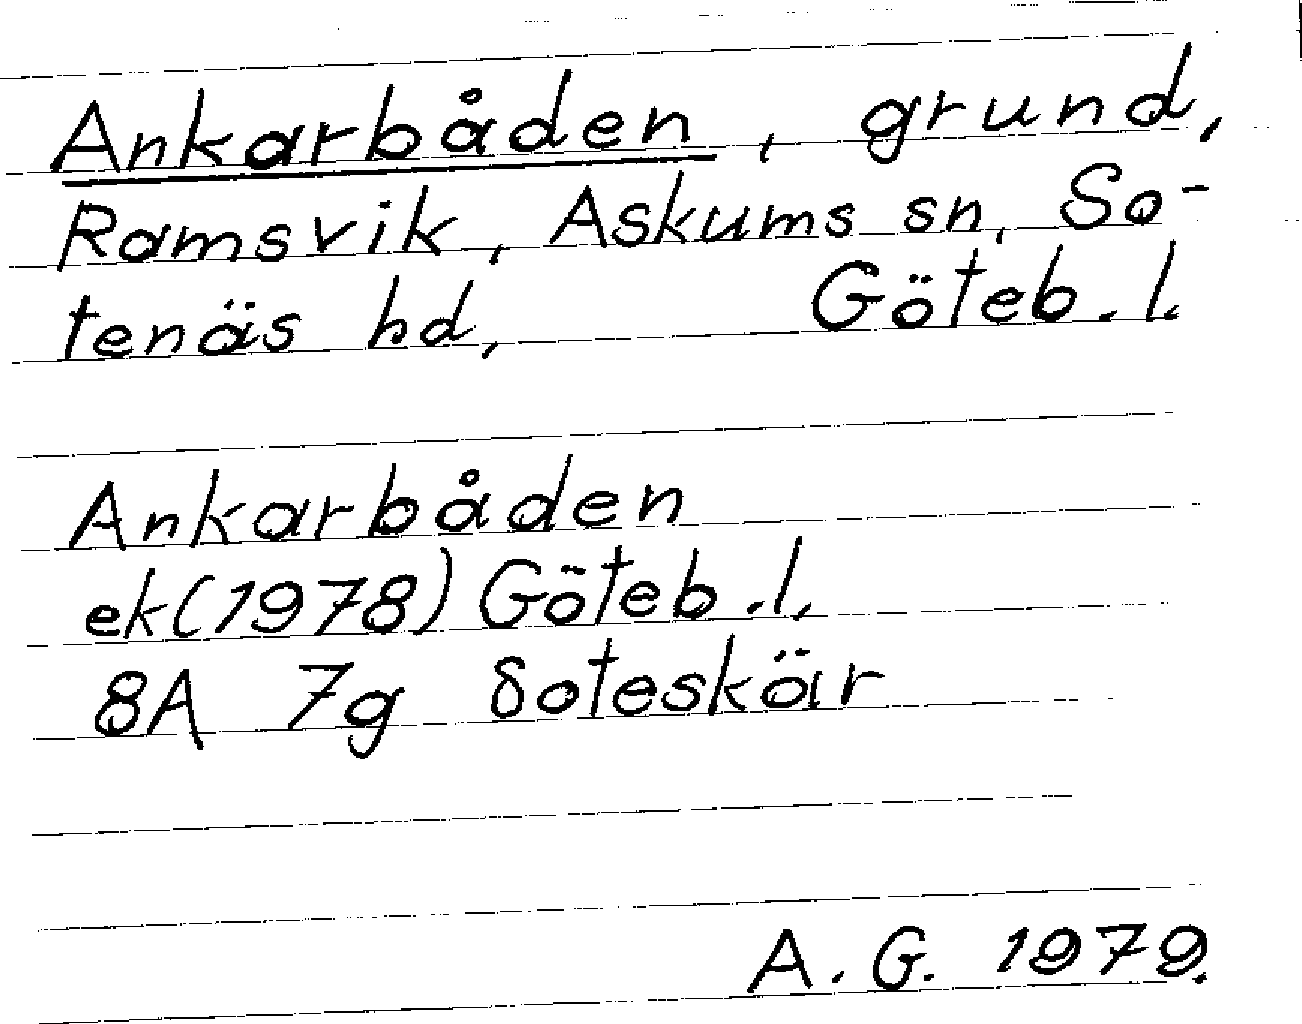 Ankarbåden, grund,
Ramsvik, Askums sn, So-
tenäs hd, Göteb. l.
Ankarbåden
ek(1978) Göteb. l.
8A 7g Soteskär
A. G. 1979.